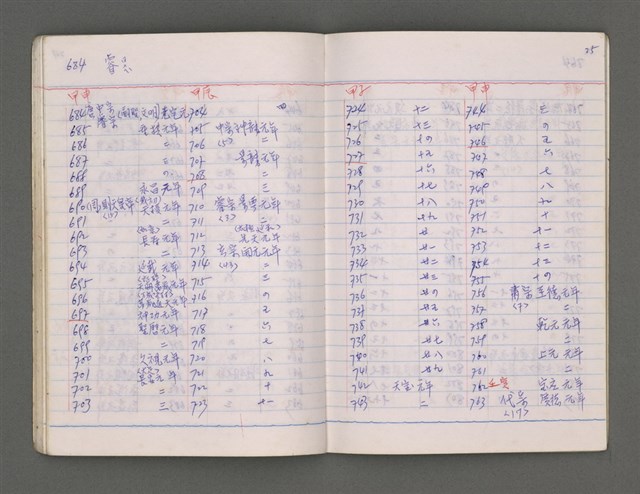 684
25
甲申 甲辰
684 唐中宗 睿宗 (嗣聖 文明) 光宅元年 704 四
685 垂拱元年 705 中宗神龍元年
686 二 706 (5) 二
687 三 707 景龍元年
688 四 708 二
689 永昌元年 709 三
690 (周)則天皇帝 天授元年 710 睿宗景雲元年
691 (15) 二 711 (3) 二
692 長壽元年 712 先天元年
693 二 713 玄宗開元元年
694 延載元年 714 二
695 715 三
696 716 四
697 神功元年 717 五
698 聖曆元年 718 六
699 二 719 七
700 久視元年 720 八
701 長安元年 721 九
702 二 722 十
703 三 723 十一
甲子 甲申
724 十二 744 三
725 十三 745 四
726 十四 746 五
727 十五 747 六
728 十六 748 七
729 十七 749 八
730 十八 750 九
731 十九 751 十
732 廿 752 十一
733 廿一 753 十二
734 廿二 754 十三
735 廿三 755 十四
736 廿四 756 肅宗至德元年
737 廿五 757 (7) 二
738 廿六 758 乾元元年
739 廿七 759 二
740 廿八 760 上元元年
741 廿九 761 二
742 天宝元年 762 宝应元年
743 二 763 代宗 (17) 广德元年